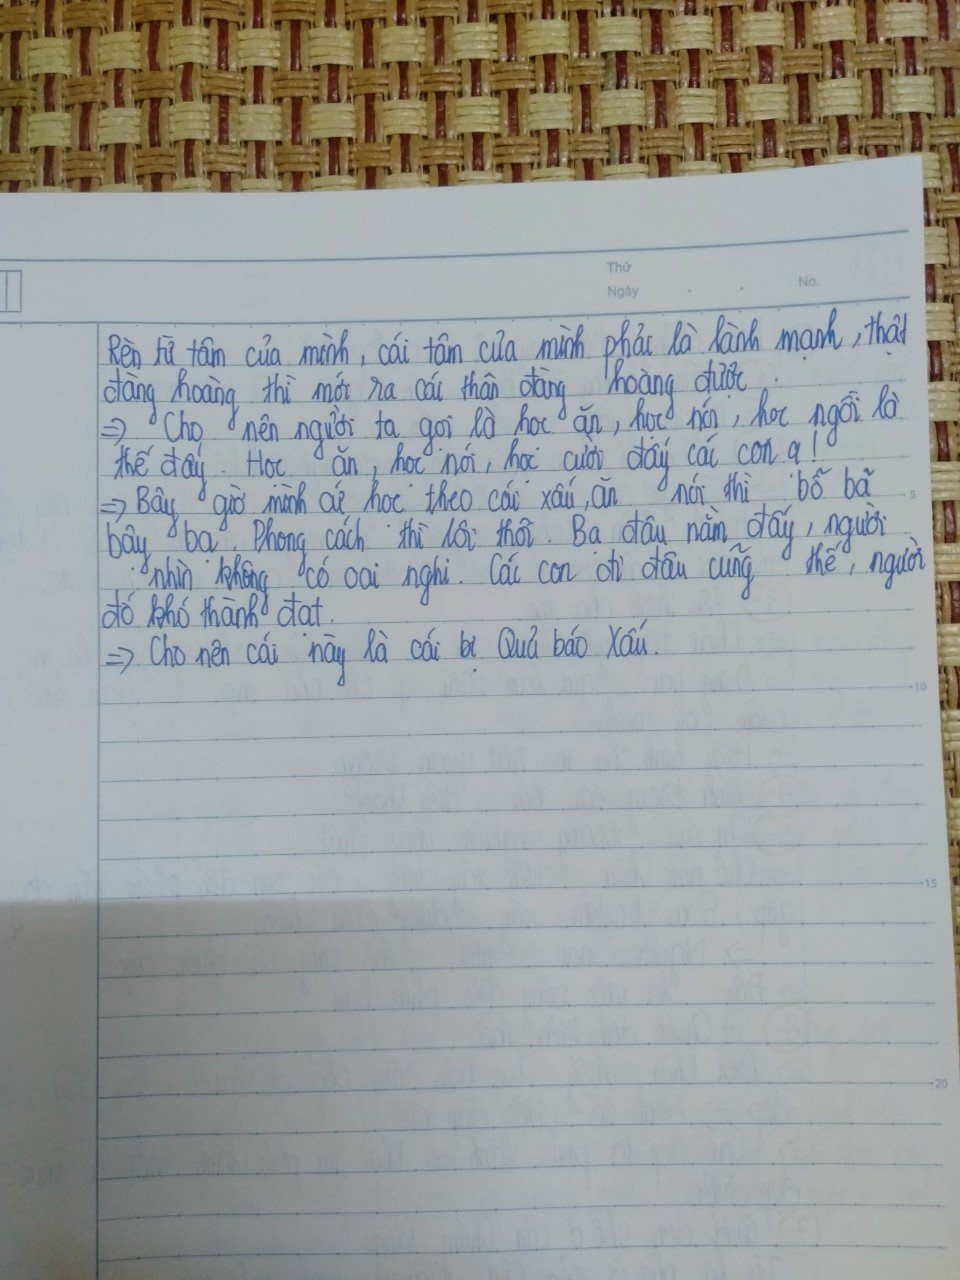 Thứ
Ngày . . No.
Rèn từ tâm của mình, cái tâm của mình phải là lành mạnh, thật
đàng hoàng thì mới ra cái thân đàng hoàng được.
=> Cho nên người ta gọi là học ăn, học nói, học ngồi là
thế đấy. Học ăn, học nói, học cười đấy các con ạ!
=> Bây giờ mình cứ học theo cái xấu, ăn nói thì bỗ bã
5
bậy bạ. Phong cách thì lôi thôi. Ba đâu nằm đấy, người
nhìn không có oai nghi. Các con đi đâu cũng thế, người
đó khó thành đạt.
=> Cho nên cái này là cái bị Quả báo Xấu.
10
15
20